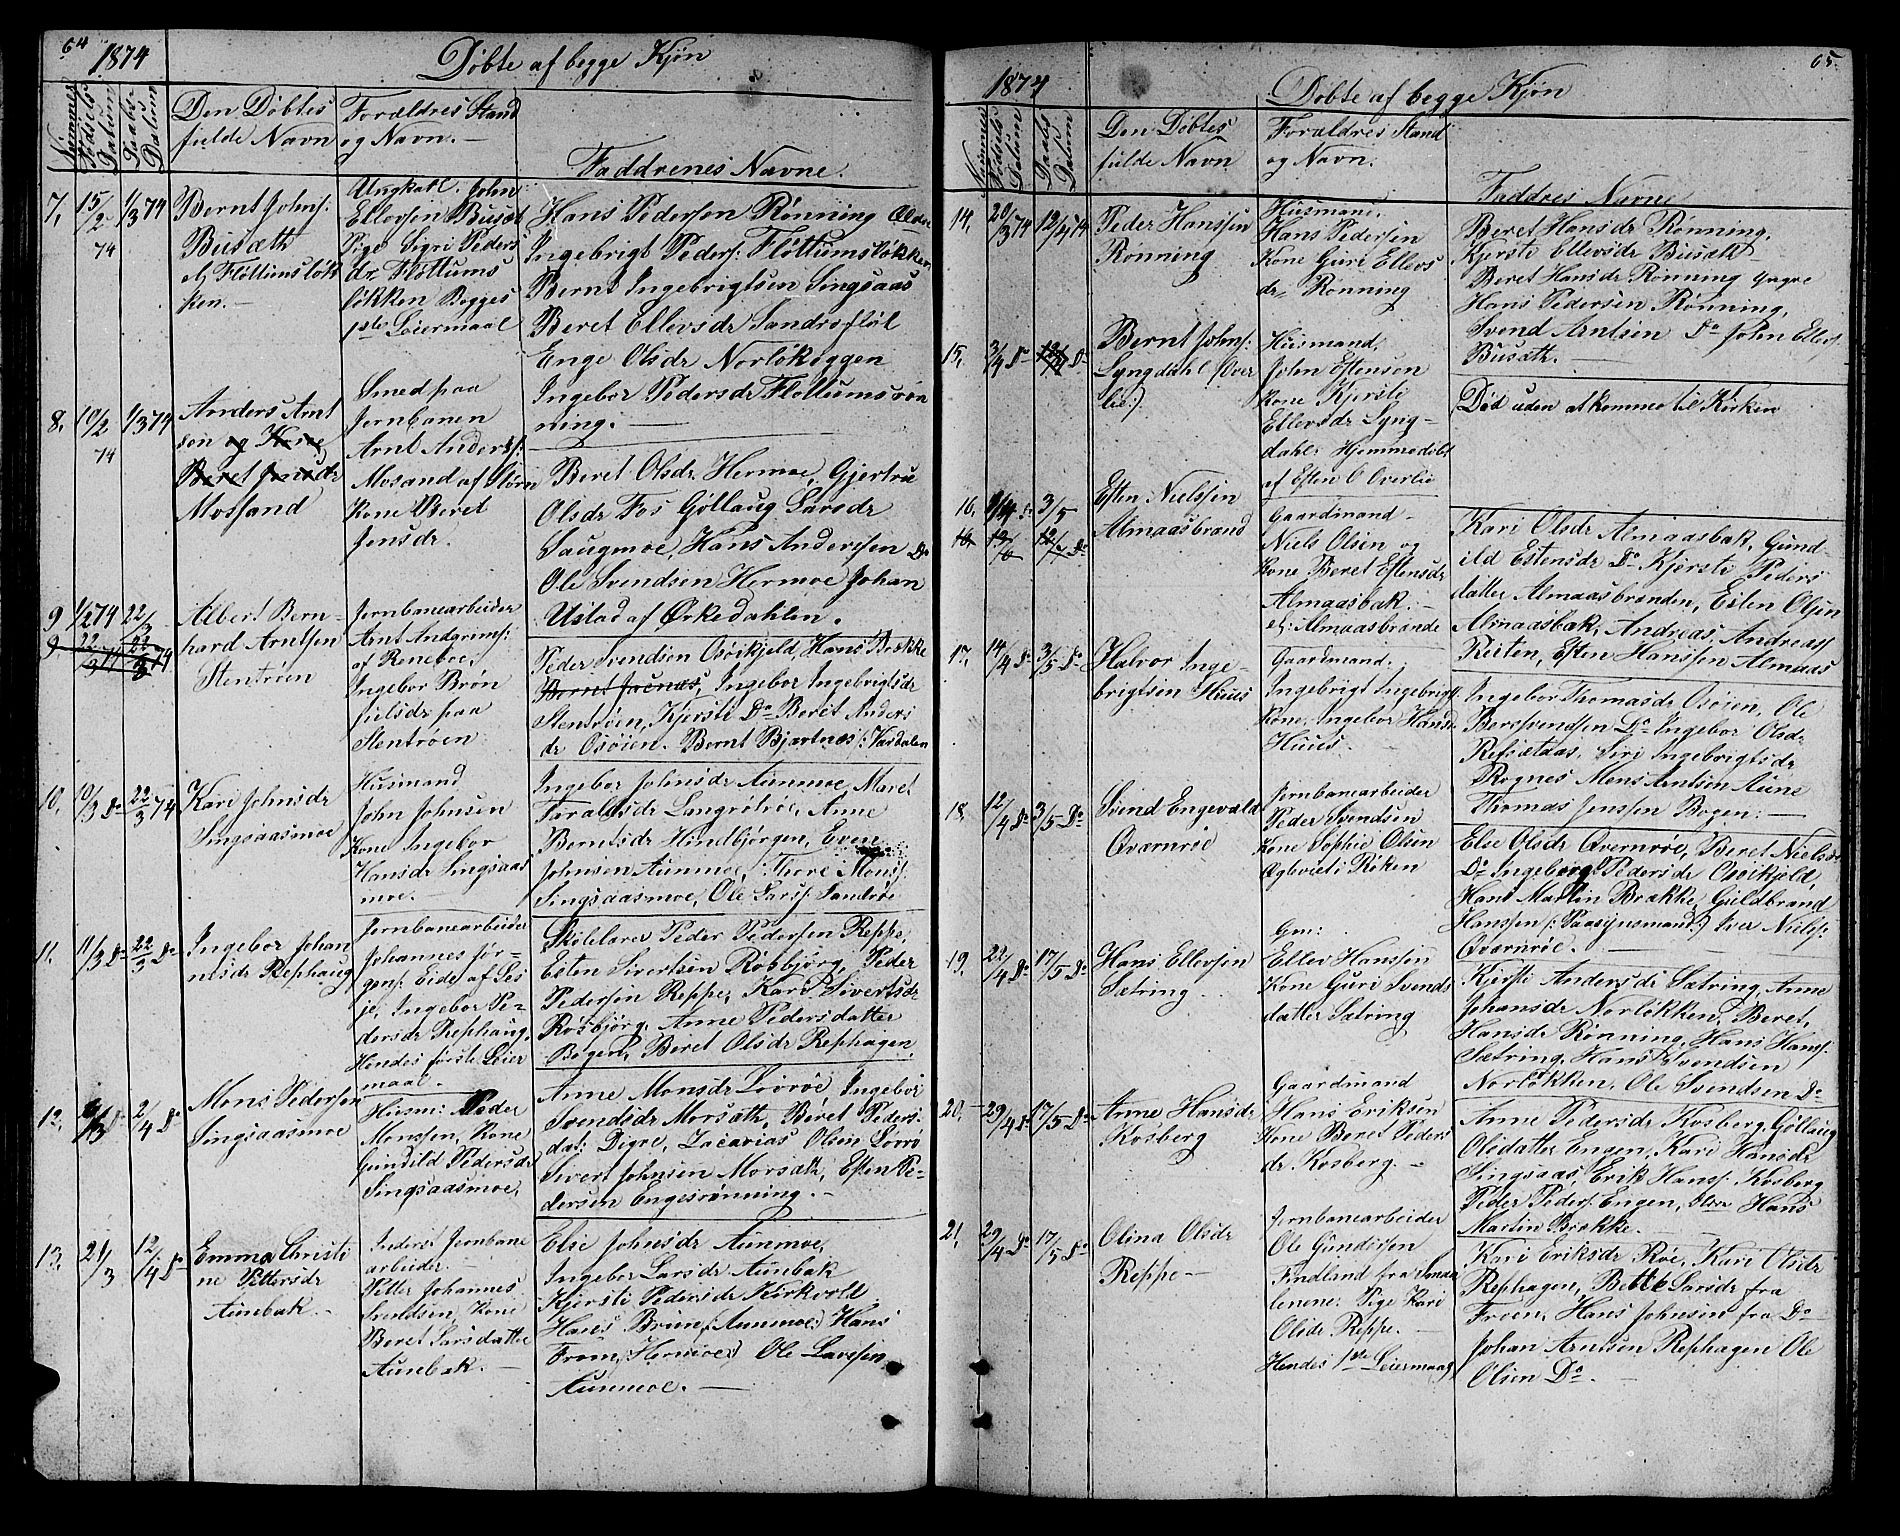 64
1874
Döbte af begge Kjön
Nummer
Födsels Datum
Daabs Datum
Den Döbtes
fulde Navn
Forældres Stand
og Navn.
Faddrenes Navne.
7,
15/2 74
1/3 74
Bernt Johns:
Busæth
ell Flöttumslök
ken.
Ungkarl. John
Ellevsen Busæt
Pige Sigri Peders
dr Flöttums
lökken Begges
1ste Leiermaal
Hans Pedersen Rönning
Ingebrigt Peders: Flöttumslökken
Bernt Ingebrigtsen Singsaas
Beret Ellevsdr Sandrsflöt
Enge Olsdr Norlökeggen
Ingebor Pedersdr Flöttumsrön
ning.
8,
10/2 74
1/3 74
Anders Arnt
sen og Kone
Beret Jensdr
Mossand
Smed paa
Jernbanen
Arnt Anders:
Mosand af Störn
Kone Beret
Jensdr.
Beret Olsdr Hermoe, Gjertru
Olsdr Fos Göllaug Larsdr
Saugmoe, Hans Anderssen Do
Ole Svendsen Hermoe Johan
Ustad af Örkedahlen.
9
1/2 74
22/3
9.
22/3 74
22/3 74
Albert Bern-
hard Arntsen
Stentröen
Jernbanearbeider
Arnt Andgrims:
af Reneboe,
Ingebor Brön
julsdr paa
Stentröen
Peder Svendsen Osökjeld, Hans Brække
Bernt Jacnæs, Ingebor Ingebrigtsdr
Stentröen, Kjersti Do Beret Anders
dr Osöien. Bernt Bjartnæs /: Værdalen
10,
10/3 Do
22/3 74
Kari Johnsdr
Singsaasmoe
Husmand
John Johnsen
Kone Ingebor
Hansdr Singsaas
moe.
Ingebor Johnsdr Aunmoe, Maret
Taraldsdr Langröröe, Anne
Berntsdr Hindbjörgen, Even
Johnsen Aunmoe, Thore Mons:
Singsaasmoe, Ole Lars: Sandröe
11,
11/3 Do
22/3 Do
Ingebor Johan
nesdr Rephaug
Jernbanearbeider
Johannes Jör-
gens: Eide af Les
je, Ingebor Pe-
dersdr Rephaug.
Hendes förste Leier
maal.
Skolelærer Peder Pedersen Reppe,
Esten Sivertsen Rösbjörg, Peder
Pedersen Reppe, Kari Sivertsdr
Rösbjörg, Anne Pedersdatter
Bogen, Beret Olsdr Rephagen.
12,
2/4 Do
Mons Pedersen
Singsaasmoe
Husm: Peder
Monssen, Kone
Gunild Pedersdr
Singsaasmoe,
Anne Monsdr Lövröe, Ingebor
Svendsdr Morsæth, Beret Peders-
dat: Digre, Zacarias Olsen Lövrö
Sivert Johnsen Morsæth, Esten Pe-
dersen Engesrönning.
13,
21/3
12/4 Do
Emma Christi
ne Pettersdr
Aunebak.
Inderst Jernbane
arbeider
Petter Johannes
Svendsen, Kone
Beret Larsdatter
Aunebak.
Else Johnsdr Aunmoe,
Ingebor Larsdr Aunebak
Kjersti Pedersdr Kirkvold
Hans Bruun (Aunmoe) Hans
From, (Hermoe) Ole Larssen
Aunmoe.
65.
1874
Döbte af begge Kjön
Nummer
Födsels Datum
Daabs Datum
Den Döbtes
fulde Navn
Forældres Stand
og Navn.
Faddres Navne
14,
20/3 74
12/4 74
Peder Hanssen
Rönning
Husmand,
Hans Pedersen
Kone Guri Ellevs
dr Rönning
Beret Hansdr Rönning,
Kjersti Ellevsdr Busæth
Beret Hansdr Rönning yngre
Hans Pedersen Rönning,
Svend Arntsen Do John Ellevs:
Busæth.
15,
3/4 Do
12/4 Do
Bernt Johns:
Lyngdahl (Over
lie)
Husmand,
John Estensen
Kone Kjersti
Ellevsdr Lyng-
dahl. Hjemmedöbt
af Esten O Overlie
Död uden at komme til Kirken
16,
3/5
Esten Nielssen
Almaasbrand
16
12/4 Do
Gaardmand
Niels Olsen og
Kone Beret Estensdr
Almaasbak.
el: Almaasbrände
Kari Olsdr Almaasbak, Gund-
ild Estensdr Do Kjersti Peders
datter Almaasbranden, Esten Olsen
Almaasbak, Andreas Andreas
Reiten, Esten Hanssen Almaas
17,
14/4 Do
3/5 Do
Halvor Inge-
brigtsen Huus
Gaardmand,
Ingebrigt Ingebrigt
Kone, Ingebor Hans
Huus.
Ingebor Thomasdr Osöien, Ole
Berssvendsen Do Ingebor Olsdr
Refsætaas, Siri Ingebrigtsdr
Rognes Mons Arntsen Aune
Thomas Jenssen Bogen:
18,
12/4 Do
3/5 Do
Svend Engevald
Qværnröe
Jernbanearbeider
Peder Svendsen
Kone Sophie Olsen
Ogbveit i Röken
Else Olsdr Qvernröe, Beret Nielsdr
Do Ingeborg Pedersdr Osökjeld,
Hans Martin Brække, Guldbrand
Hanssen (Paasynsmand) Iver Niels:
Qværnröe.
19,
22/4 Do
17/5 Do
Hans Ellevsen
Sætring.
Gm:
Ellev Hanssen
Kone Guri Svends
datter Sætring
Kjersti Andersdr Sætring, Anne
Johansdr Norlökken, Beret,
Hansdr Rönning, Hans Hans:
Sætring, Hans Svendsen
Norlökken, Ole Svendsen Do
20,
29/4 Do
17/5 Do
Anne Hansdr
Kosberg
Gaardmand
Hans Eriksen
Kone Beret Peders
dr. Kosberg.
Anne Pedersdr Kosberg, Göllaug
Olsdatter Engen, Kari Hansdr
Singsaas, Erik Hans: Kosberg
Peder Peders: Engen, Hans
Martin Brække.
21,
29/4 Do
17/5 Do
Olina Olsdr
Reppe
Jernbanearbeider
Ole Gundersen
Findland fra Smaa
lenene: Pige Kari
Olsdr Reppe.
Hendes 1ste Leiermaal
Kari Eriksdr Röe, Kari Olsdr
Rephagen, Bette Larsdr fra
Froen, Hans Johnsen fra Do
Johan Arntsen Rephagen Ole
Olsen Do.